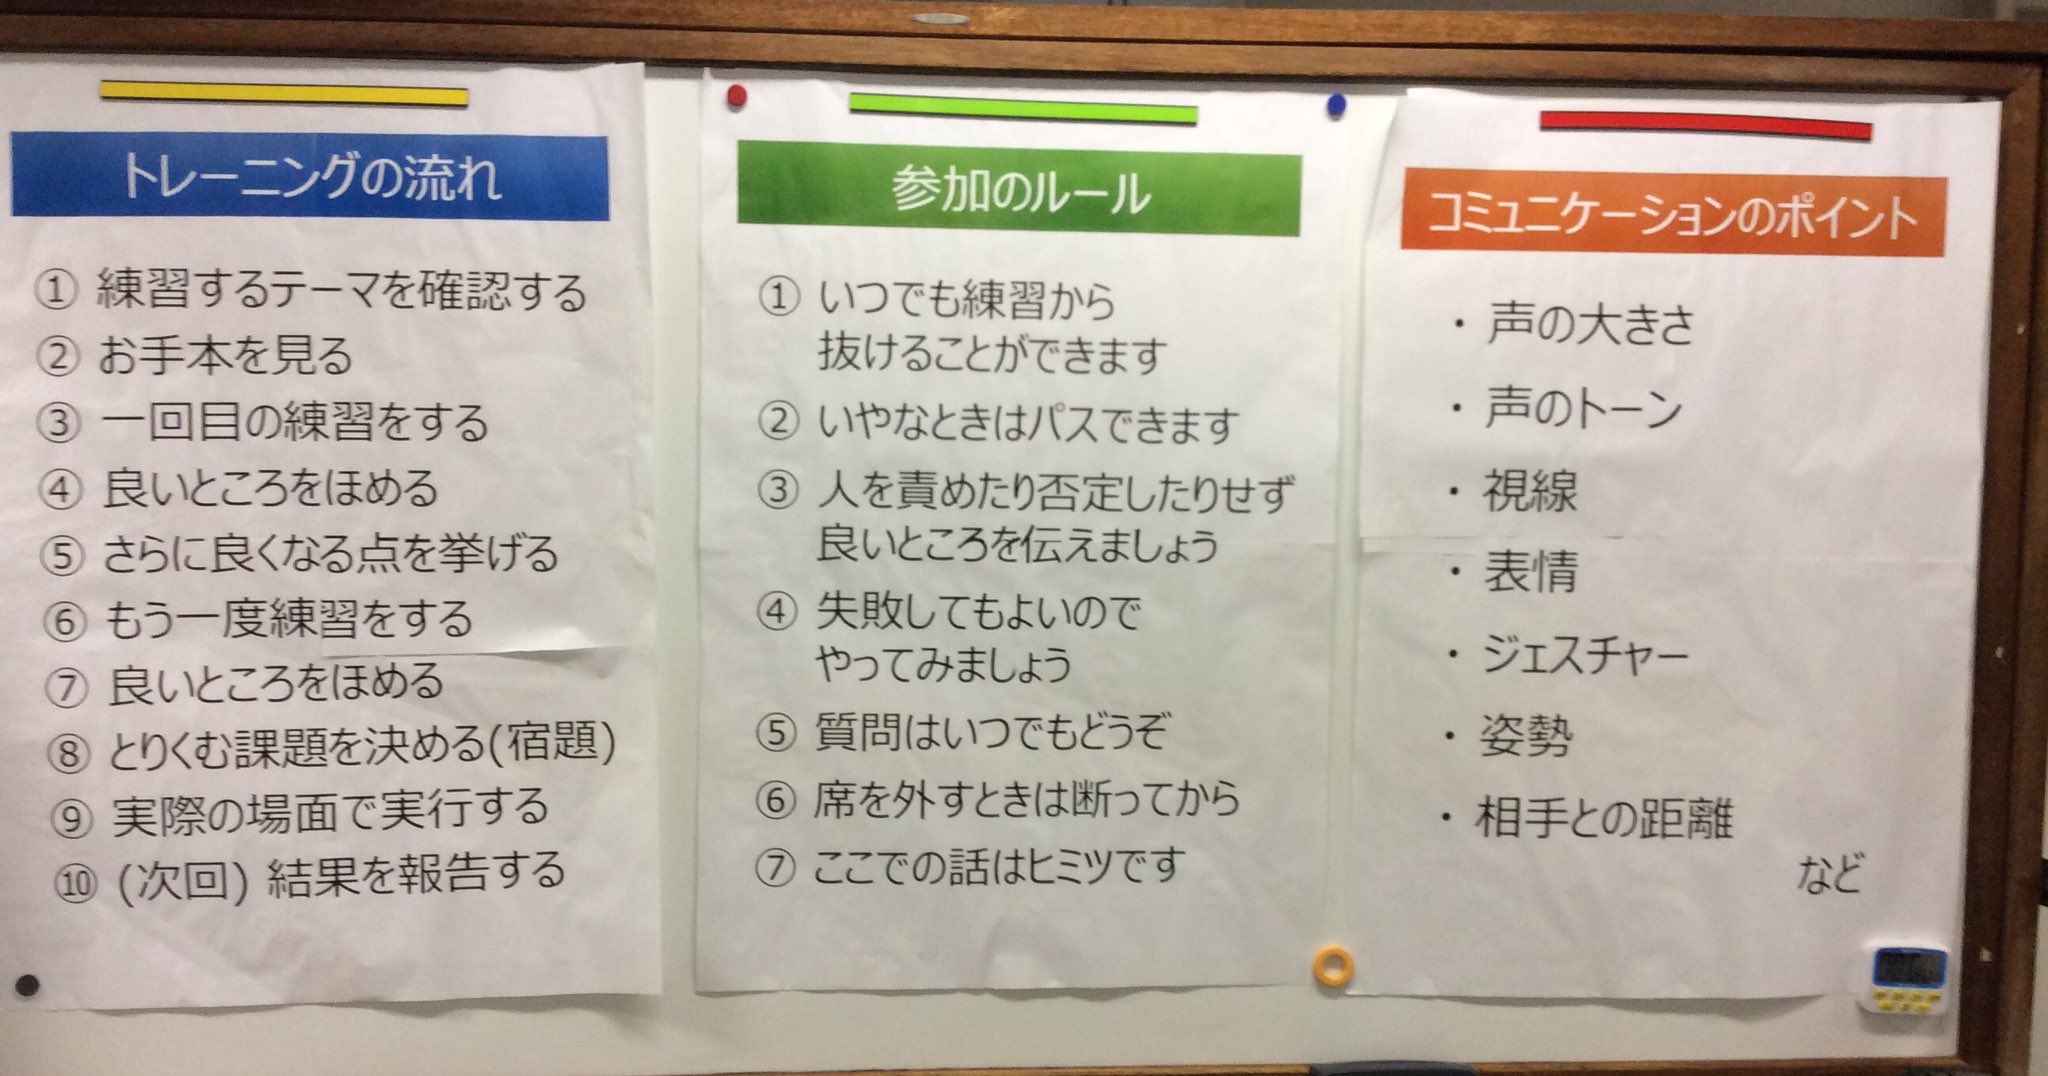 トレーニングの流れ
① 練習するテーマを確認する
② お手本を見る
③ 一回目の練習をする
④ 良いところをほめる
⑤ さらに良くなる点を挙げる
⑥ もう一度練習をする
⑦ 良いところをほめる
⑧ とりくむ課題を決める(宿題)
⑨ 実際の場面で実行する
⑩ (次回) 結果を報告する
参加のルール
① いつでも練習から
抜けることができます
② いやなときはパスできます
③ 人を責めたり否定したりせず
良いところを伝えましょう
④ 失敗してもよいので
やってみましょう
⑤ 質問はいつでもどうぞ
⑥ 席を外すときは断ってから
⑦ ここでの話はヒミツです
コミュニケーションのポイント
・声の大きさ
・声のトーン
・視線
・表情
・ジェスチャー
・姿勢
・相手との距離
など